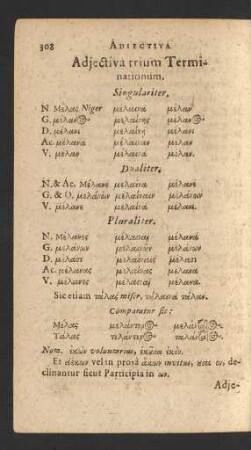 308 ADIECTIVA
Adjectiva trium Termi-
nationum.
Singulariter.
N. Μέλας Niger μέλαινα μέλαν
G. μέλανος μελαίνης μέλανος
D. μέλανι μελαίνῃ μέλανι
Ac. μέλανα μέλαιναν μέλαν
V. μέλαν μέλαινα μέλαν.
Dualiter.
N. & Ac. Μέλανε μελαίνα μέλανε
G. & D. μελάνοιν μελαίναιν μελάνοιν
V. μέλανε μελαίνα μέλανε.
Pluraliter.
N. Μέλανες μέλαιναι μέλανα
G. μελάνων μελαινῶν μελάνων
D. μέλασι μελαίναις μέλασι
Ac. μέλανας μελαίνας μέλανα
V. μέλανες μέλαιναι μέλανα.
Sic etiam τάλας miser, τάλαινα τάλαν.
Comparatur sic:
Μέλας μελάντερος
Τάλας
Nota. ἑκὼν voluntarius, ἑκοῦσα ἑκόν.
Et ἀέκων vel in prosâ ἄκων invitus, de-
clinantur sicut Participia in ων.
Adje-